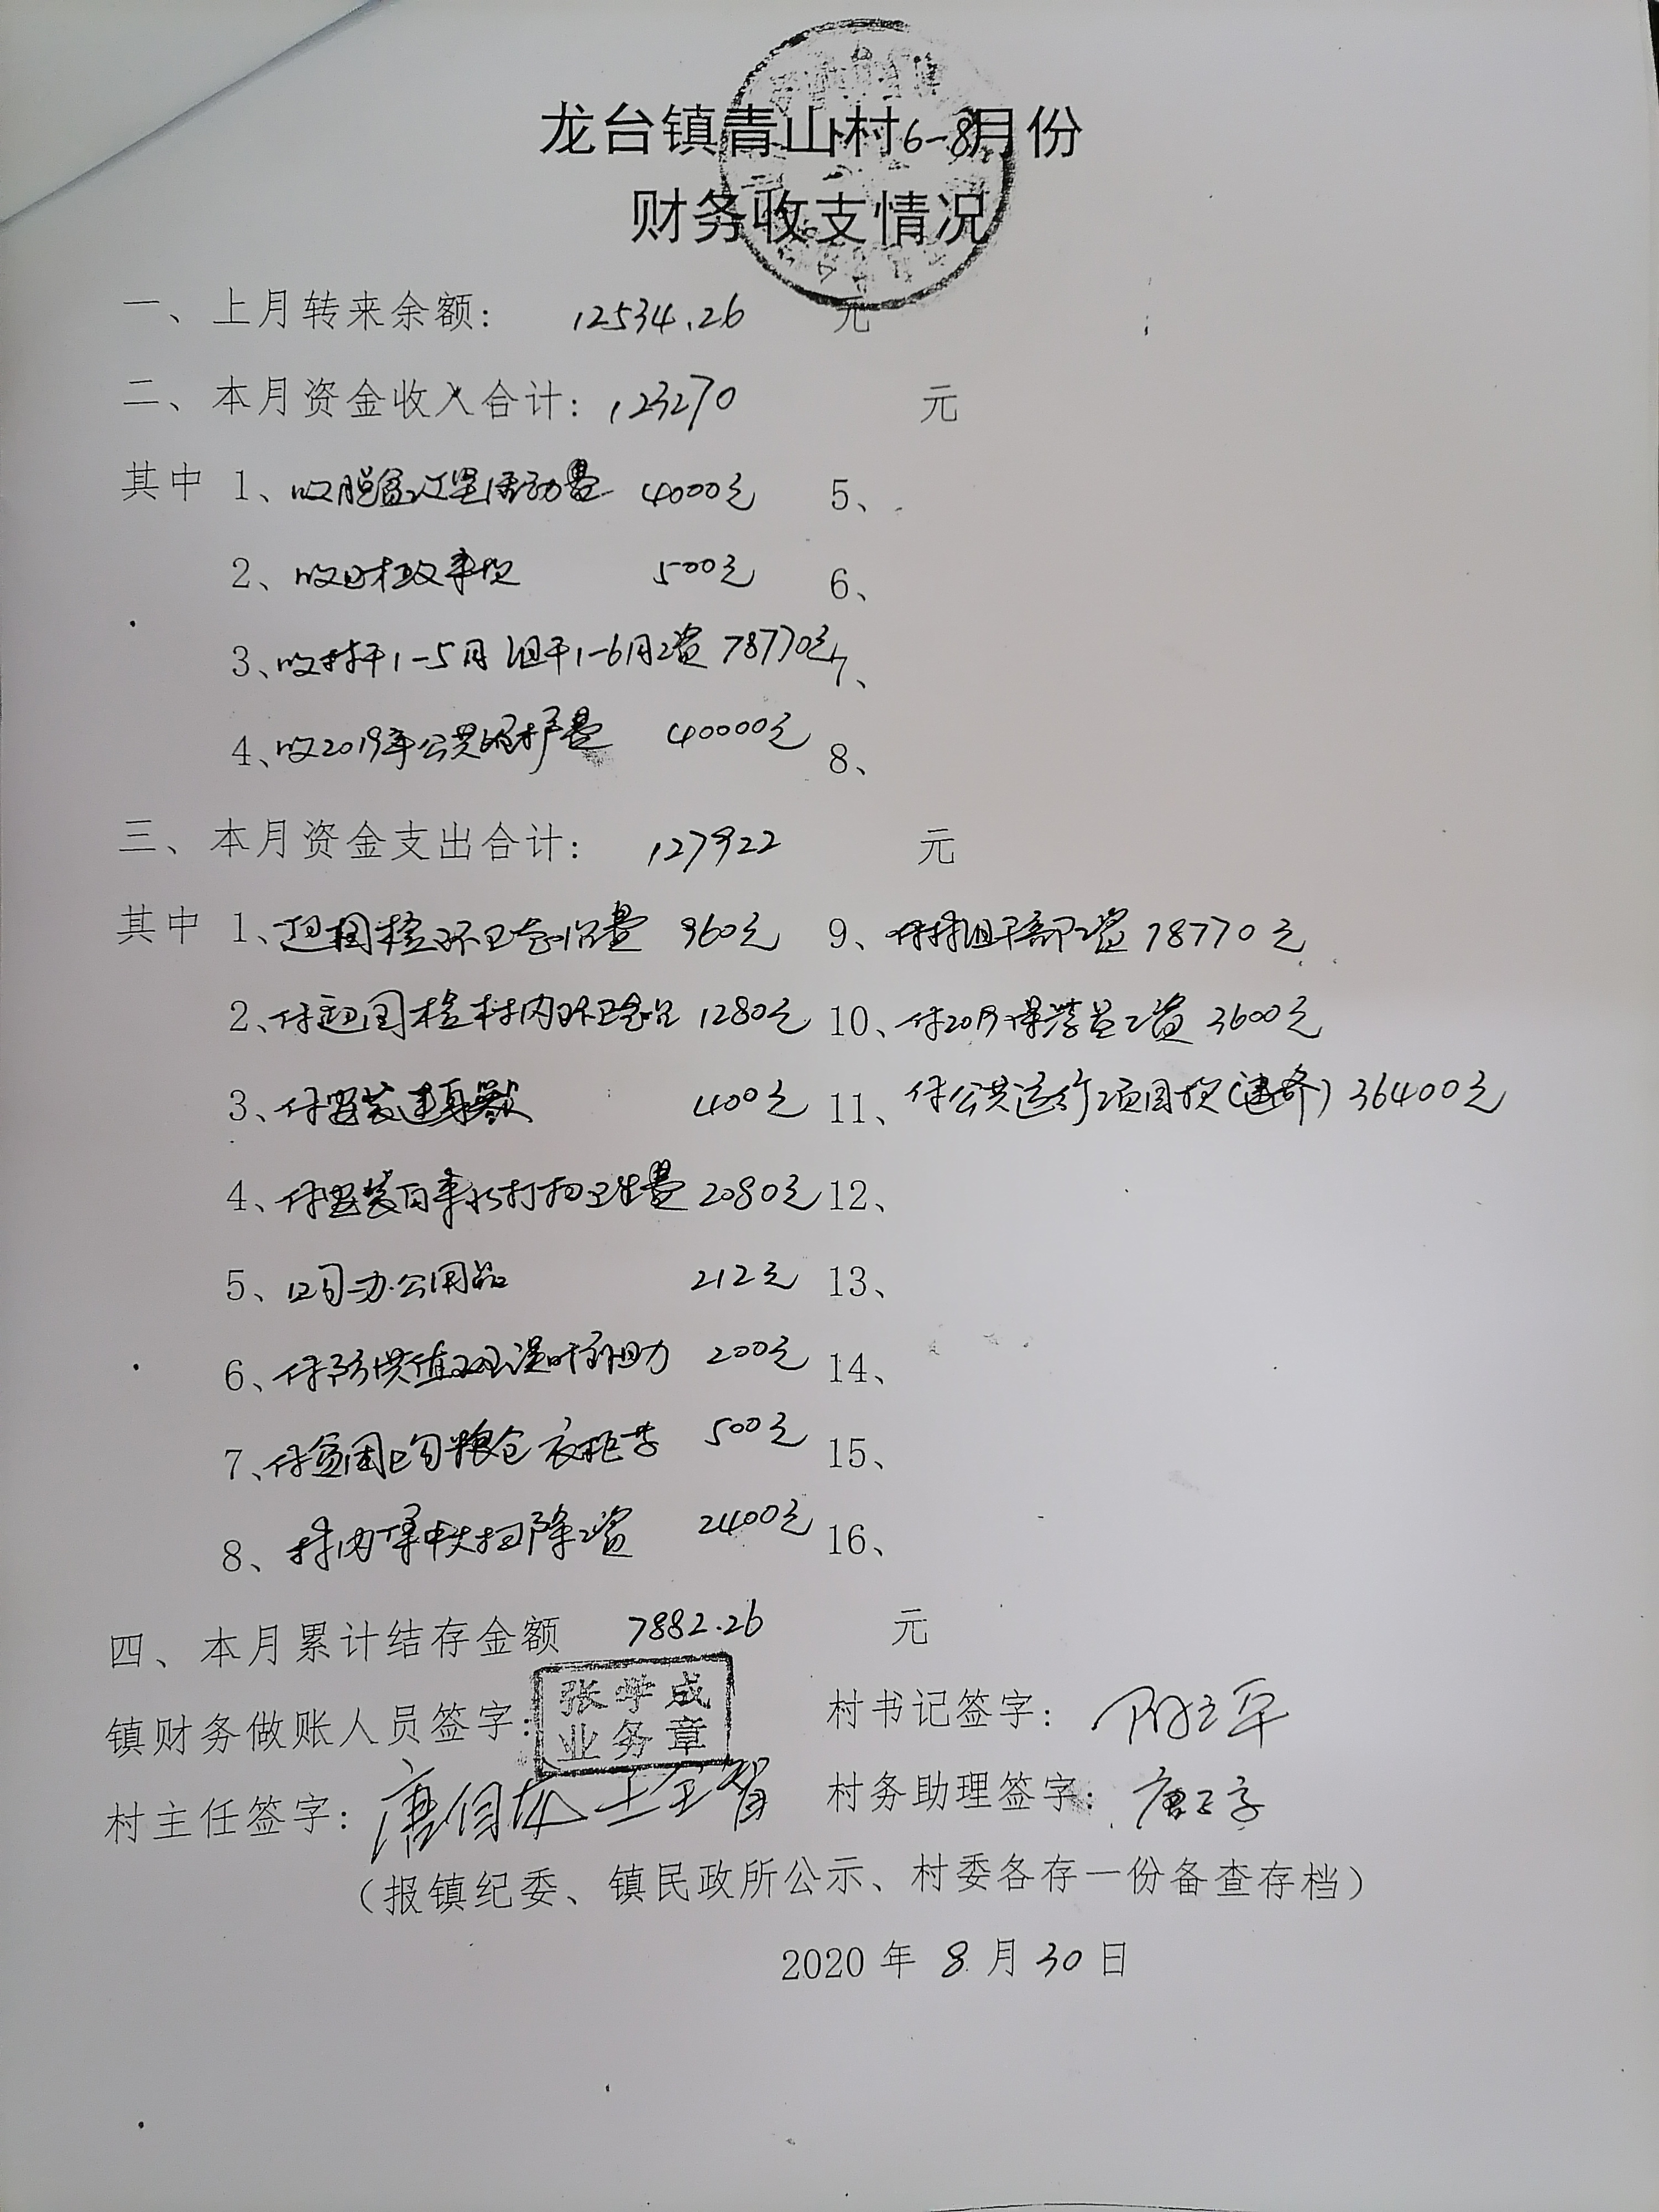 龙台镇青山村6-8月份
财务收支情况
一、上月转来余额: 12534.26 元
二、本月资金收入合计: 123270 元
其中 1、收脱贫攻坚活动费 4000元 5、
2、收财政事项 500元 6、
3、收村干1-5月组干1-6月工资 78770元 7、
4、收2019年公共维护费 40000元 8、
三、本月资金支出合计: 127922 元
其中 1、迎国检环卫 费 960元 9、付村组干部工资 78770元
2、付迎国检村内环卫 1280元 10、付 保洁员工资 3600元
3、付安装 400元 11、付公共运行项目款( ) 36400元
4、付安装自来水打扫卫生费 2080元 12、
5、购办公用品 212元 13、
6、付防洪值班误时补助 200元 14、
7、付贫困购粮仓衣柜等 500元 15、
8、村内集中大扫除工资 2400元 16、
四、本月累计结存金额 7882.26 元
张学成
业务章
镇财务做账人员签字: 村书记签字:
村主任签字: 村务助理签字:
(报镇纪委、镇民政所公示、村委各存一份备查存档)
2020年8月30日